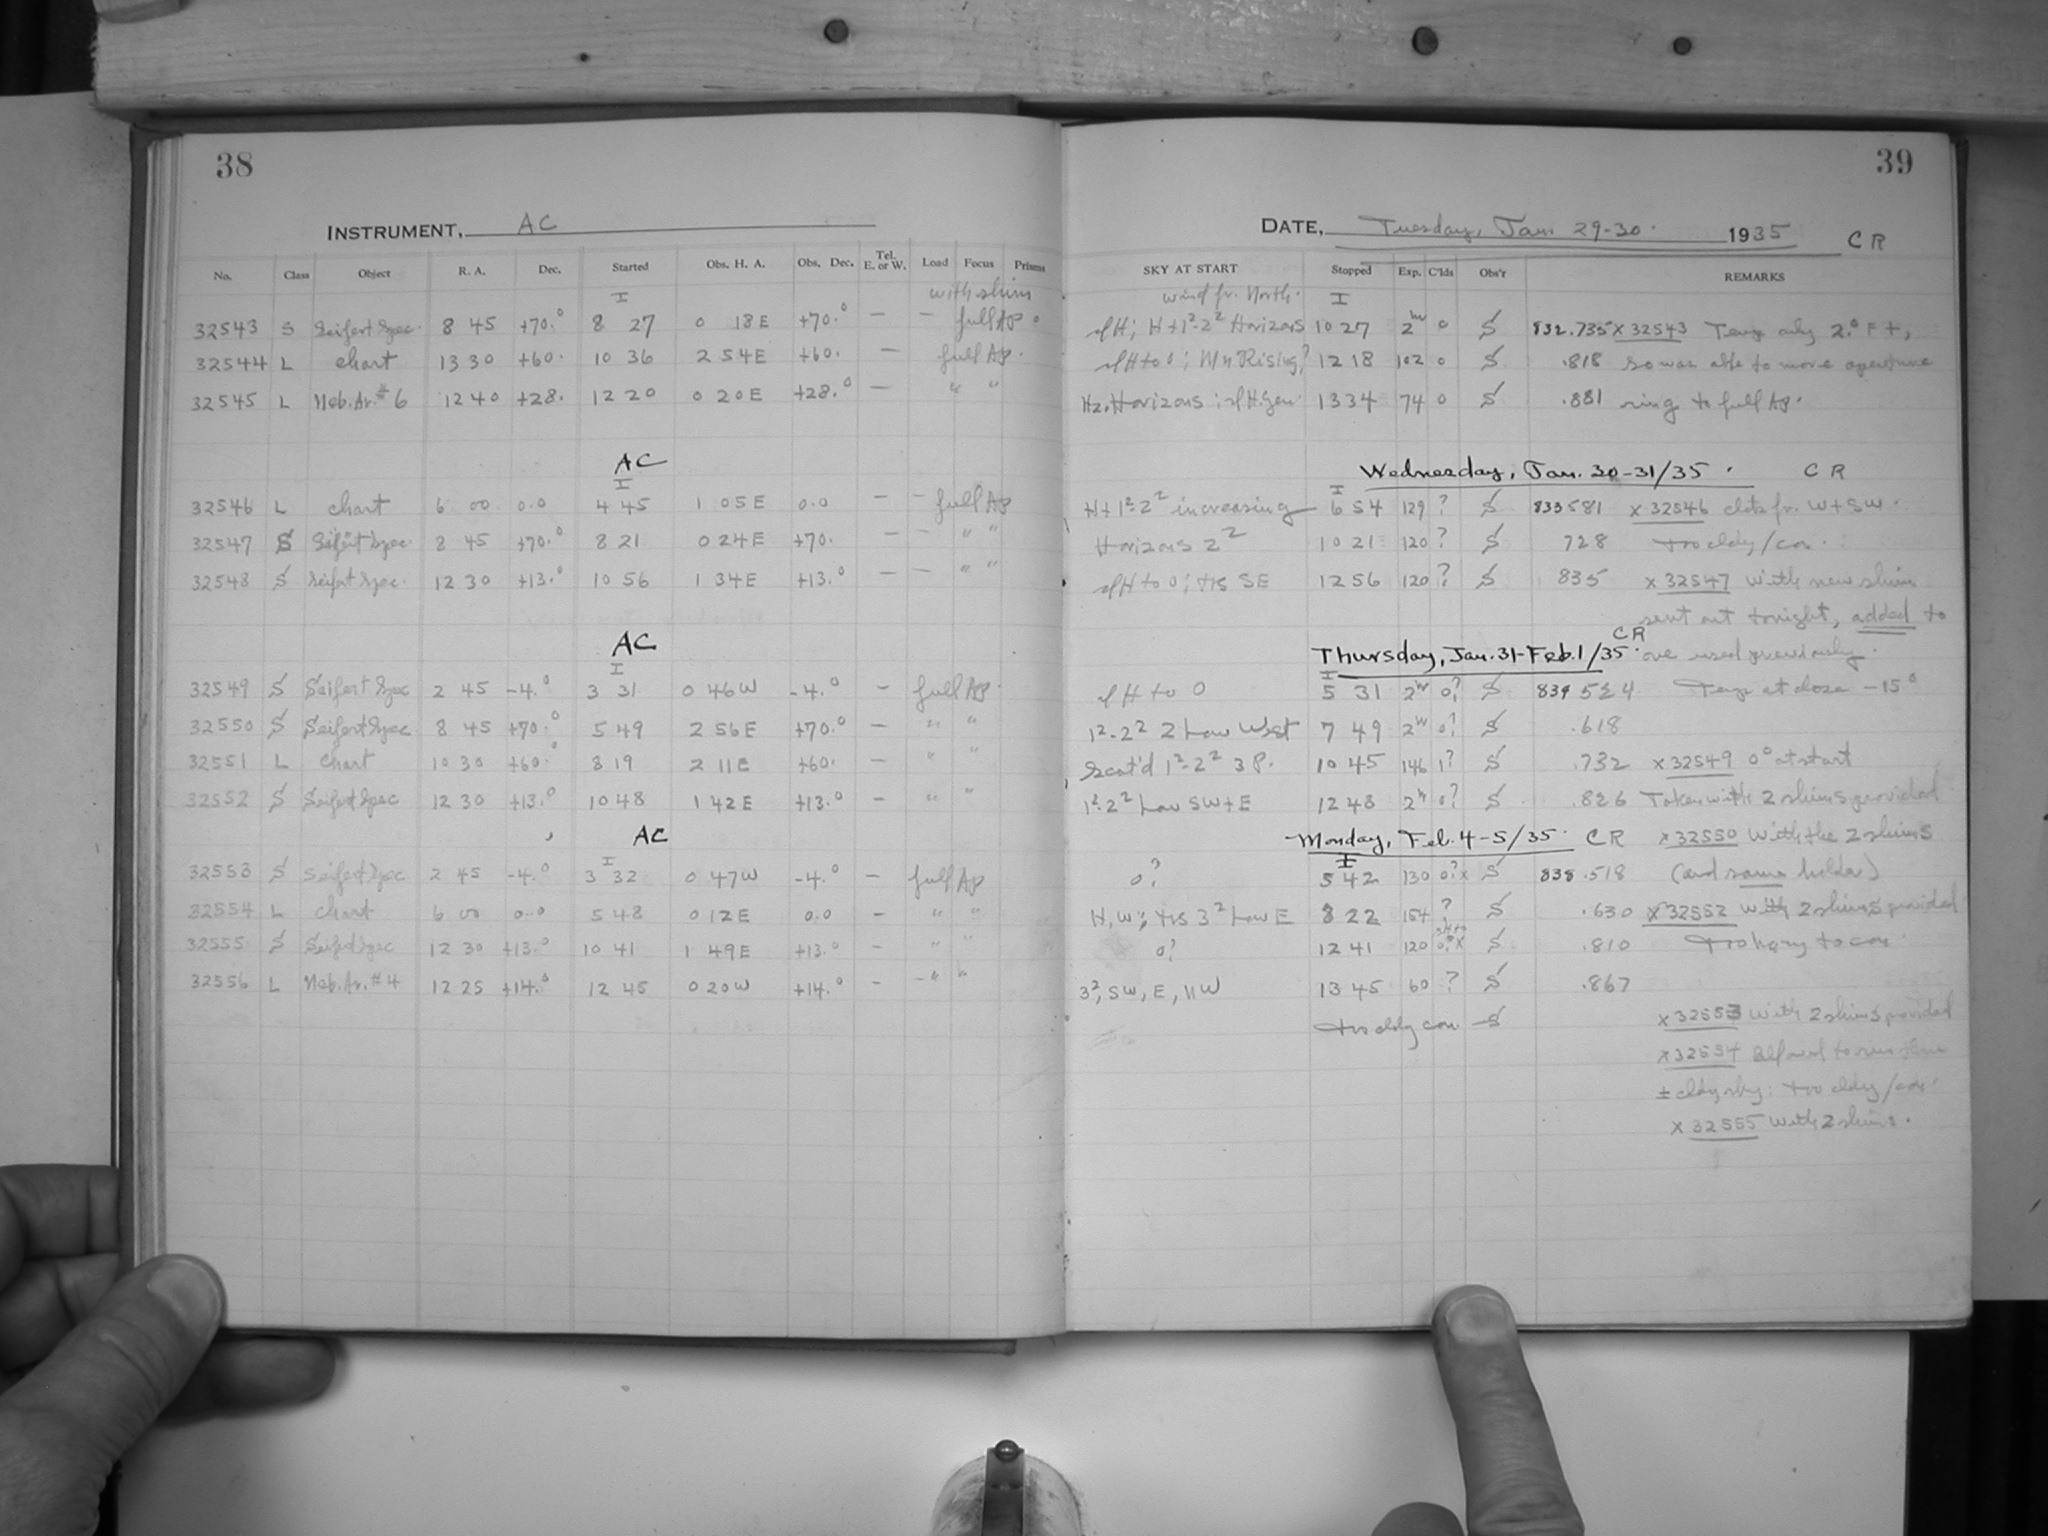 38
INSTRUMENT, AC
No. Class Object R. A. Dec. Started Obs. H. A. Obs. Dec. Tel. E. or W. Load Focus Prisms
I with shim
32543 S Seifert Spec. 8 45 +70.° 8 27 0 18 E +70.° — — full Ap.
32544 L chart 13 30 +60. 10 36 2 54 E +60. — full Ap.
32545 L Neb. Ar. #6 12 40 +28. 12 20 0 20 E +28.° — " "
AC
I
32546 L chart 6 00 0.0 4 45 1 05 E 0.0 — — full Ap
32547 S Seifert Spec. 8 45 +70.° 8 21 0 24 E +70. — — " "
32548 S Seifert Spec. 12 30 +13.° 10 56 1 34 E +13.° — — " "
AC
I
32549 S Seifert Spec 2 45 -4.° 3 31 0 46 W -4.° — full Ap.
32550 S Seifert Spec. 8 45 +70.° 5 49 2 56 E +70.° — " "
32551 L chart 10 30 +60.° 8 19 2 11 E +60. — " "
32552 S Seifert Spec 12 30 +13.° 10 48 1 42 E +13.° — " "
AC
I
32553 S Seifert Spec 2 45 -4.° 3 32 0 47 W -4.° — full Ap
32554 L chart 6 00 0.0 5 48 0 12 E 0.0 — " "
32555 S Seifert Spec 12 30 +13.° 10 41 1 49 E +13.° — " "
32556 L Neb. Ar. #4 12 25 +14.° 12 45 0 20 W +14.° — — " "
39
DATE, Tuesday, Jan. 29-30. 1935 CR
SKY AT START Stopped Exp. C'lds Obs'r REMARKS
wind fr. North. I
H + 1²-2² Horizons 10 27 2ʰ 0 S 832.735 x 32543 Temp only 2.° F +,
to 0; Mn Rising? 12 18 102 0 S .818 so was able to move aperture
Hz. Horizons; 13 34 74 0 S .881 ring to full Ap.
Wednesday, Jan. 30-31/35. CR
I
H + 1²-2² increasing 6 54 129 ? S 833581 x 32546 clds fr. W + SW.
Horizons 2² 10 21 120 ? S 728 too cldy/con.
to 0; SE 12 56 120 ? S 835 x 32547 with new shim
sent out tonight, added to
Thursday, Jan. 31-Feb. 1/35. CR one used previously.
I
to 0 5 31 2ʰ 0? S 834 524 Temp at close -15°
1²-2² 2 Low West 7 49 2ʰ 0? S .618
Scat'd 1²-2² 3 P. 10 45 146 1? S .732 x 32549 0° at start
1²-2² Low SW + E 12 48 2ʰ 0? S .826 Taken with 2 shims provided
Monday, Feb. 4-5/35. CR x 32550 With the 2 shims
I
0? 5 42 130 0? x S 838.518 (and same holder)
H, W; 3² Low E 8 22 154 ? S .630 x 32552 with 2 shims provided
0? 12 41 120 0? x S .810 Too hazy to con.
3², SW, E, NW 13 45 60 ? S .867
too cldy con — S x 32553 With 2 shims provided
x 32554 time
± cldy sky: too cldy/con.
x 32555 with 2 shims.